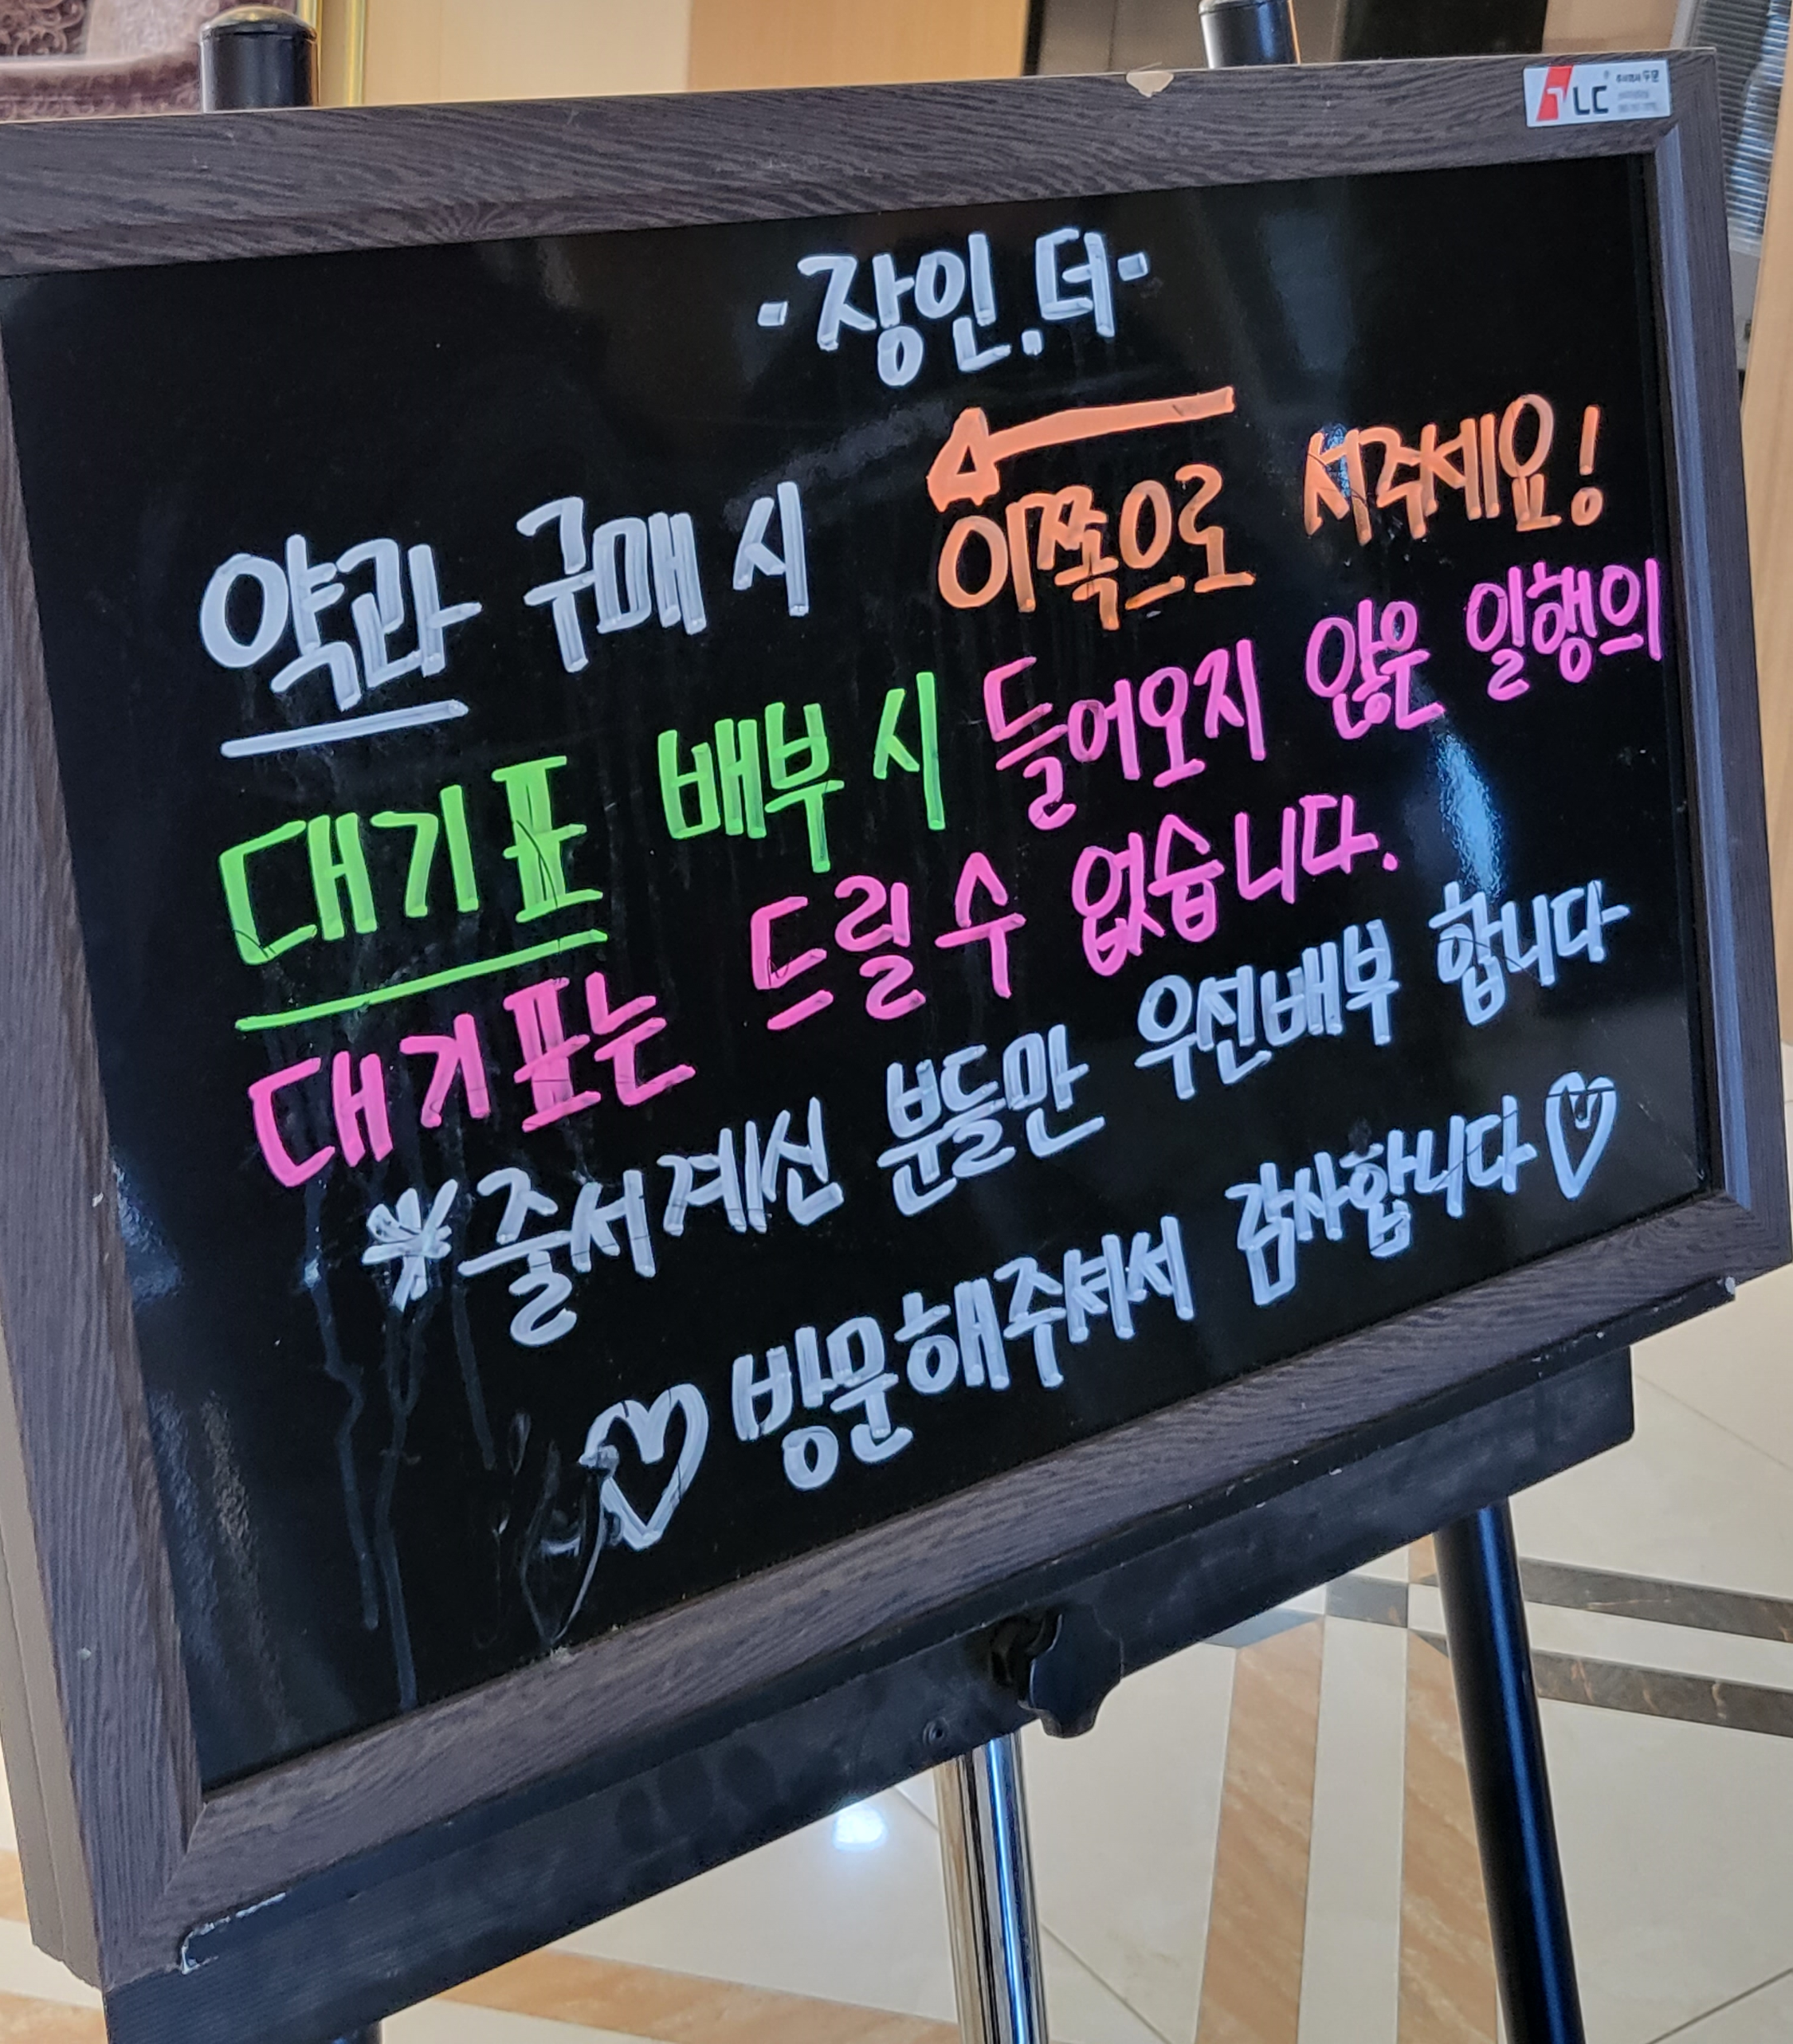 LC
-장인.더-
약과 구매 시 이쪽으로 서주세요!
대기표 배부 시 들어오지 않은 일행의
대기표는 드릴 수 없습니다.
*줄서계신 분들만 우선배부 합니다
♡방문해주셔서 감사합니다♡